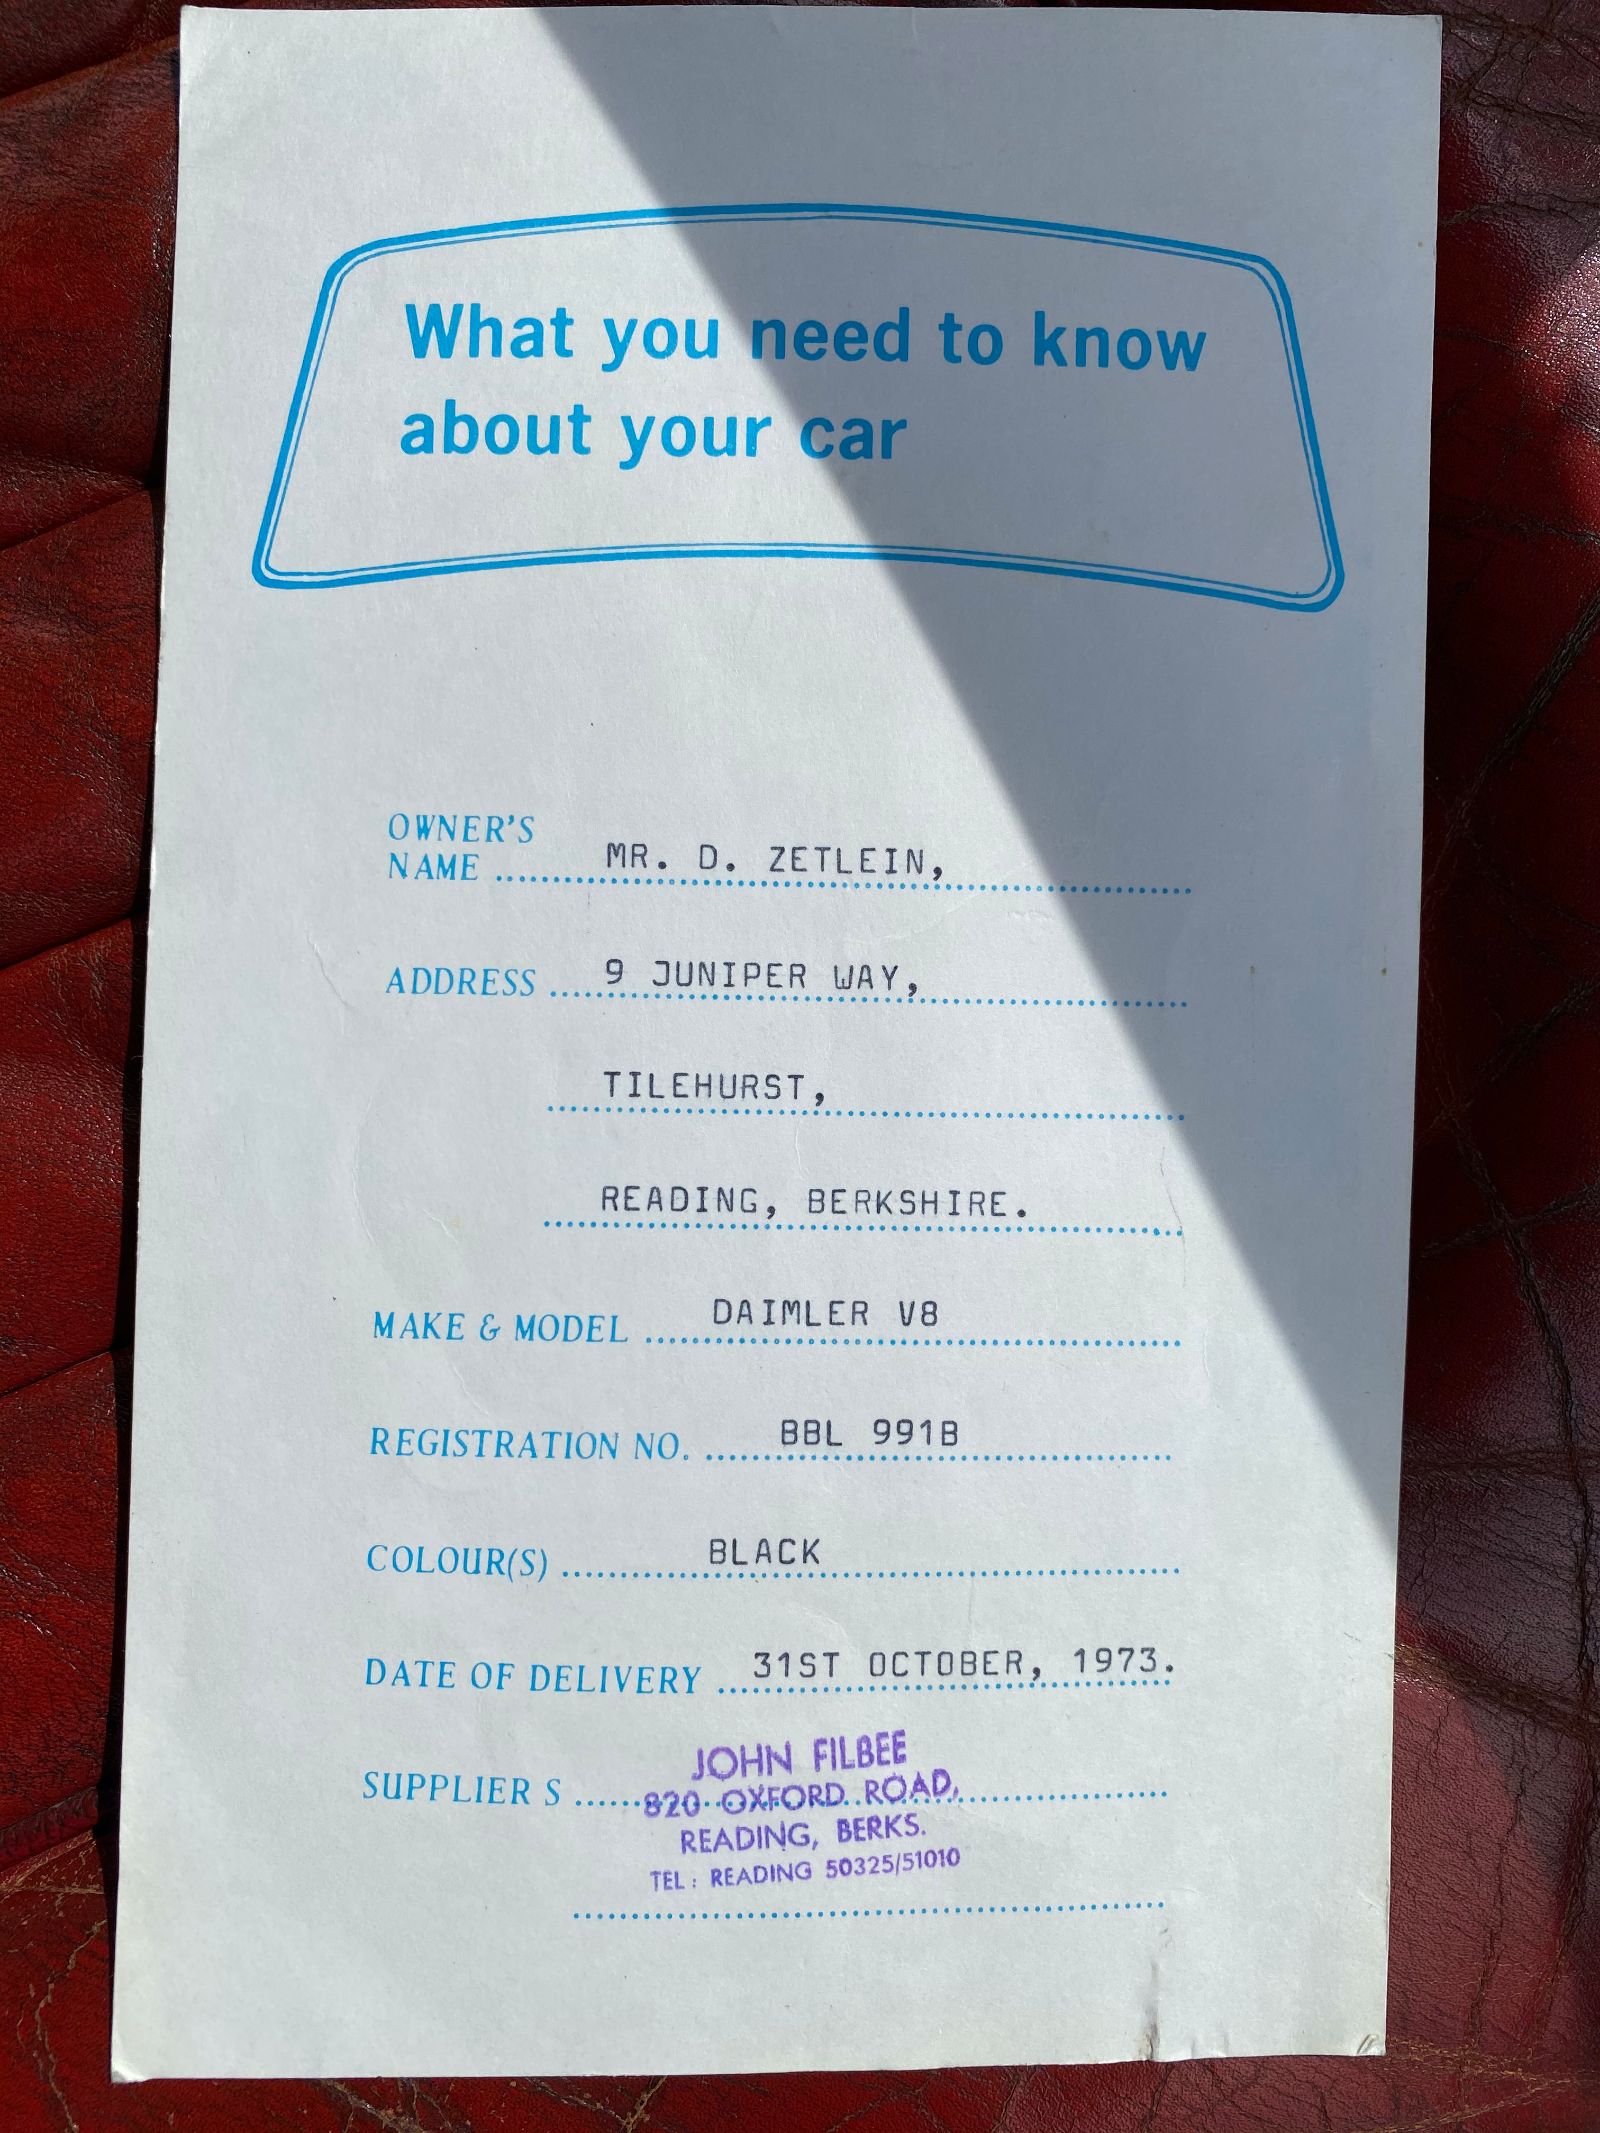 What you need to know
about your car
OWNER'S
NAME ..... MR. D. ZETLEIN,
ADDRESS ..... 9 JUNIPER WAY,
TILEHURST,
READING, BERKSHIRE.
MAKE & MODEL ..... DAIMLER V8
REGISTRATION NO. ..... BBL 991B
COLOUR(S) ..... BLACK
DATE OF DELIVERY ..... 31ST OCTOBER, 1973.
JOHN FILBEE
SUPPLIER S ..... 820 OXFORD ROAD,
READING, BERKS.
TEL: READING 50325/51010